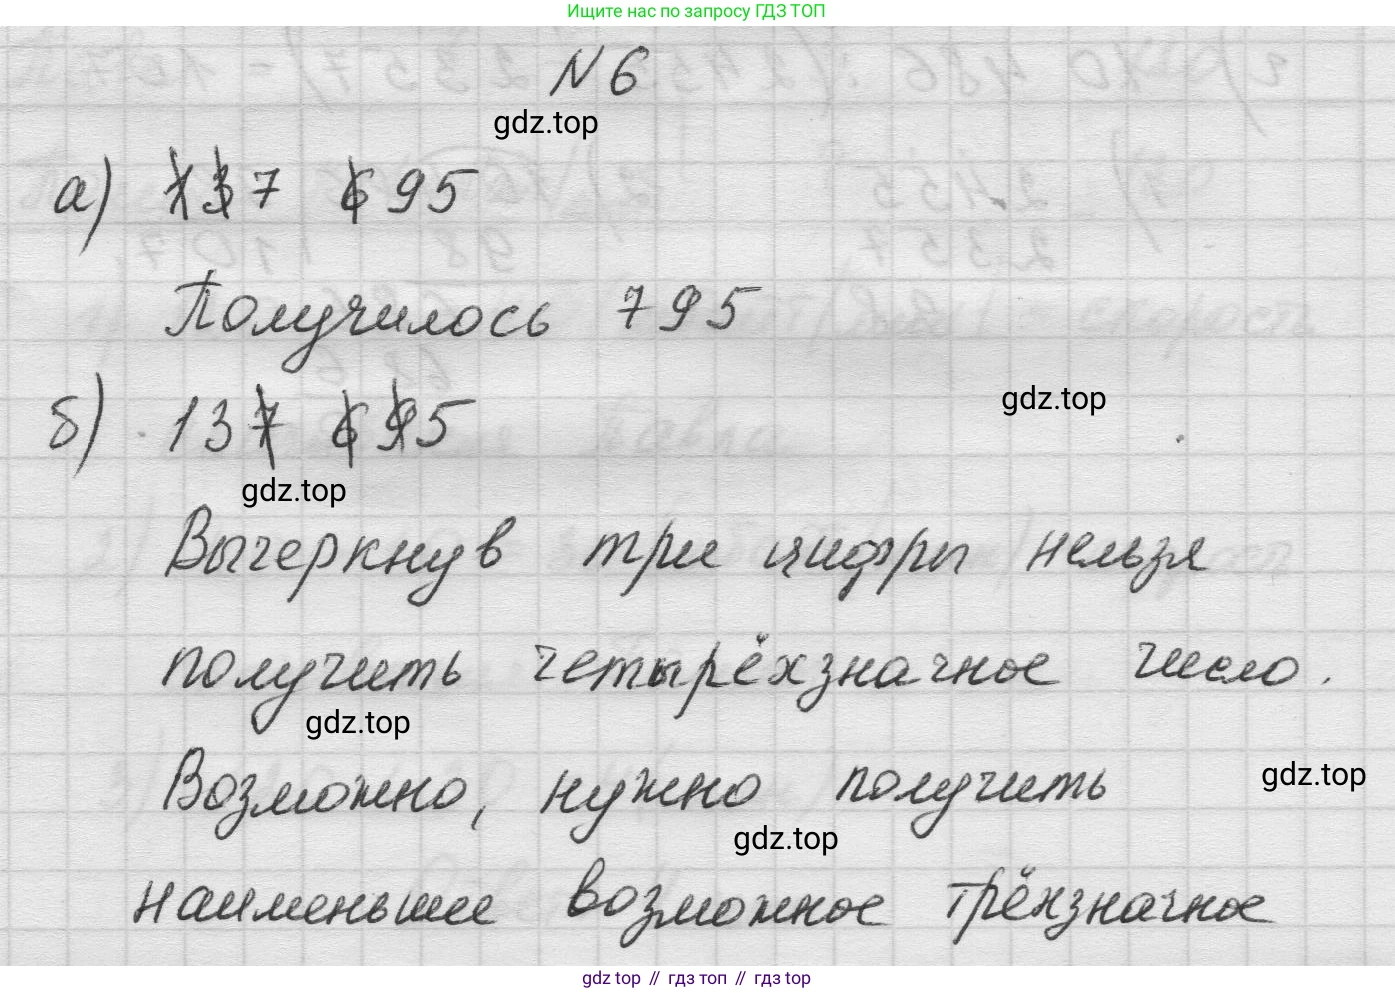 Ищите нас по запросу ГДЗ ТОП
N 6
gdz.top
а) 137 695
Получилось 795
gdz.top
б) 137 695
gdz.top
Вычеркнув три цифры нельзя
получить четырёхзначное число.
gdz.top
Возможно, нужно получить
gdz.top
gdz.top
наименьшее возможное трёхзначное
gdz top // гдз топ // гдз top